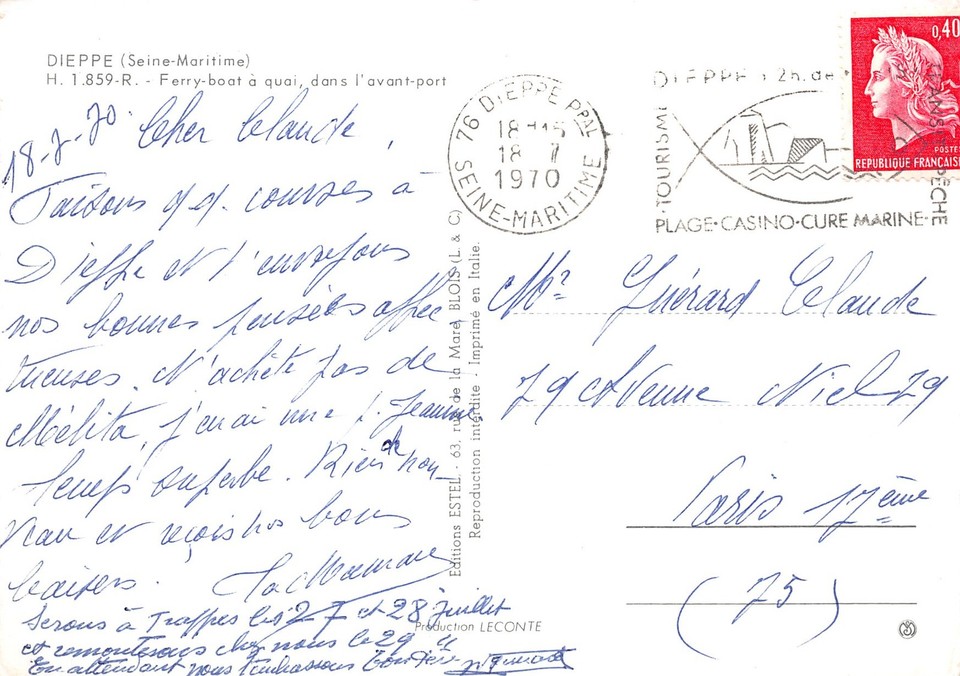 DIEPPE (Seine-Maritime)
H. 1.859-R. - Ferry-boat à quai, dans l'avant-port
18-7-70. Cher Claude,
Faisons qq. courses à
Dieppe et t'envoyons
nos bonnes pensées affec
tueuses. N'achète pas de
Mélita, j'en ai une p. Jeanne
temps superbe. Rien de nou-
veau et reçois nos bons
baisers. Ta Maman
Serons à Trappes les 27 et 28 Juillet
et remonterons chez nous le 29 "
En attendant nous t'embrassons
Editions ESTEL - 63, rue de la Mare, BLOIS (L. & C)
Reproduction interdite - Imprimé en Italie.
Production LECONTE
76 DIEPPE PPAL
18 7
1970
SEINE-MARITIME
DIEPPE à 2h. de
TOURISME
PLAGE-CASINO-CURE MARINE-
PÊCHE
0,40
POSTES
REPUBLIQUE FRANCAISE
Mr Guérard Claude
79 Avenue Niel 79
Paris 17ème
(75)